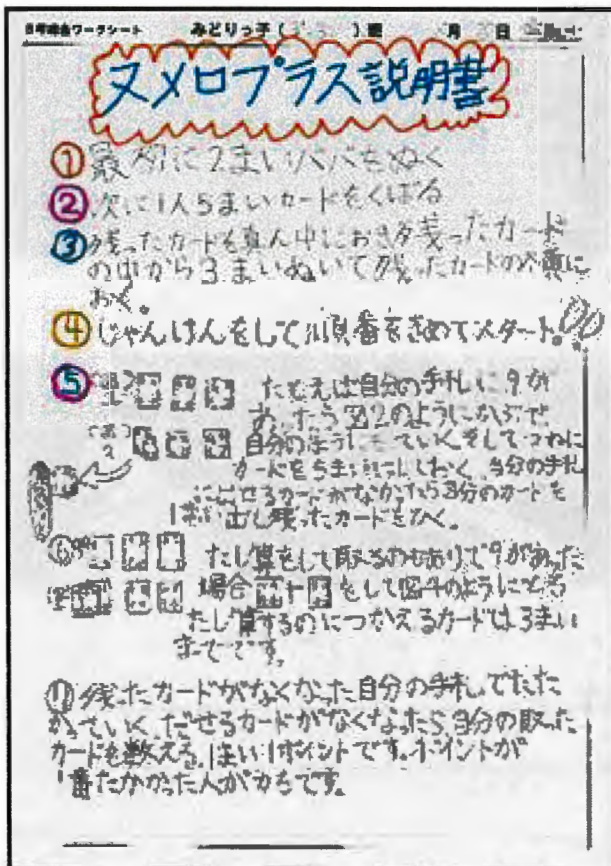 みどりっ子( )班 月 日
ヌメロプラス説明書
① 最初に2まいババをぬく
② 次に1人5まいカードをくばる
③ 残ったカードを真ん中におき残ったカード
の中から3まいぬいて残ったカードの横に
おく。
④ じゃんけんをして順番をきめてスタート。
⑤ たとえば自分の手札に9が
あったら図2のようにかぶせ
自分のほうにもっていく。そしてつねに
カードを5まい
自分の手札
にだせるカードがなかったら自分のカードを
1まい出し残ったカードをひく。
⑥ たし算をして取るのもありで9があった
場合 + をして図4のようにとる
たし算するのにつかえるカードは3まい
までです。
残ったカードがなくなった自分の手札でたた
かっていく。だせるカードがなくなったら自分の取った
カードを数える。1まい1ポイントです。ポイントが
1番たかかった人がかちです。